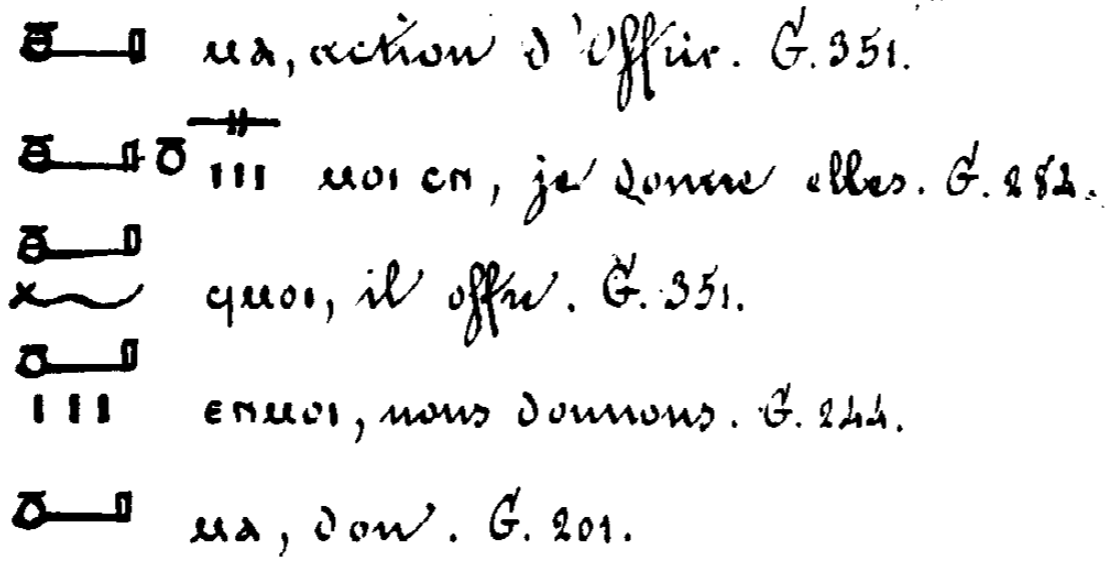 ⲙⲁ, action d'offrir. G. 351.
ⲙⲟⲓ ⲥⲛ, je donne elles. G. 284.
ϥⲙⲟⲓ, il offre. G. 351.
ⲉⲛⲙⲟⲓ, nous donnons. G. 244.
ⲙⲁ, don. G. 201.